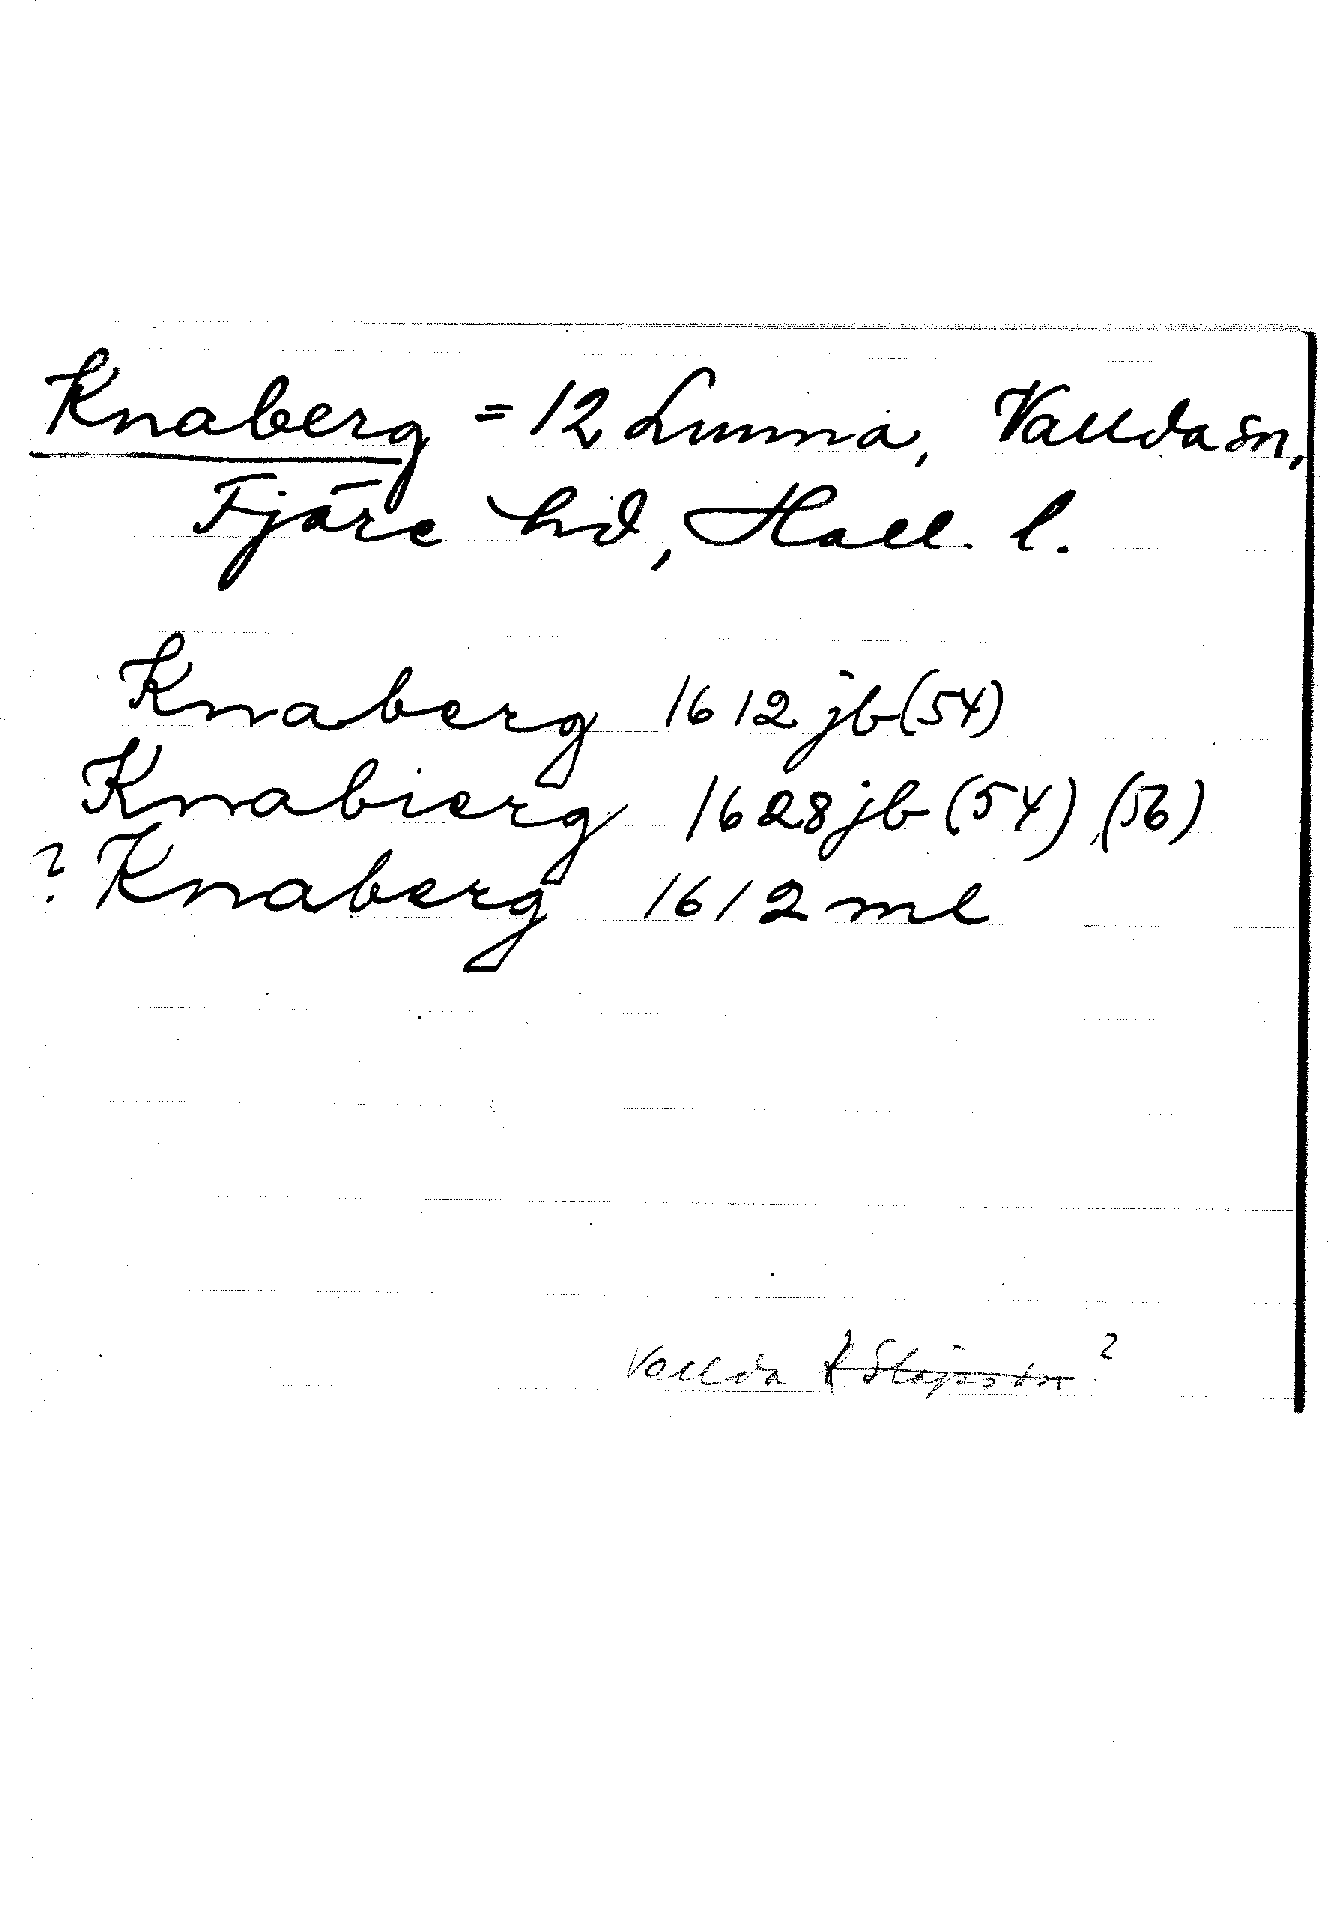 Knaberg = 12 Lunna, Vallda sn,
Fjäre hd, Hall. l.
Knaberg 1612 jb (54)
Knabierg 1628 jb (54) (56)
? Knaberg 1612 ml
Vallda ?